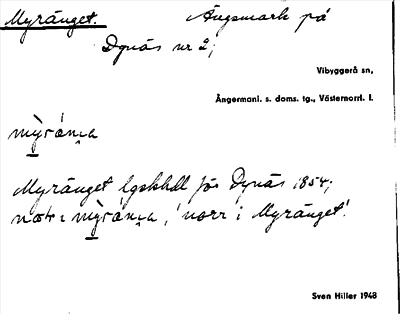 Myränget. Ängsmark på
Dynäs nr 2;
Vibyggerå sn,
Ångermanl. s. doms. tg., Västernorrl. l.
mỳránꞑa
Myränget lgskhdl för Dynäs 1854;
norr i mỳránꞑa, 'norr i Myränget'.
Sven Hiller 1948